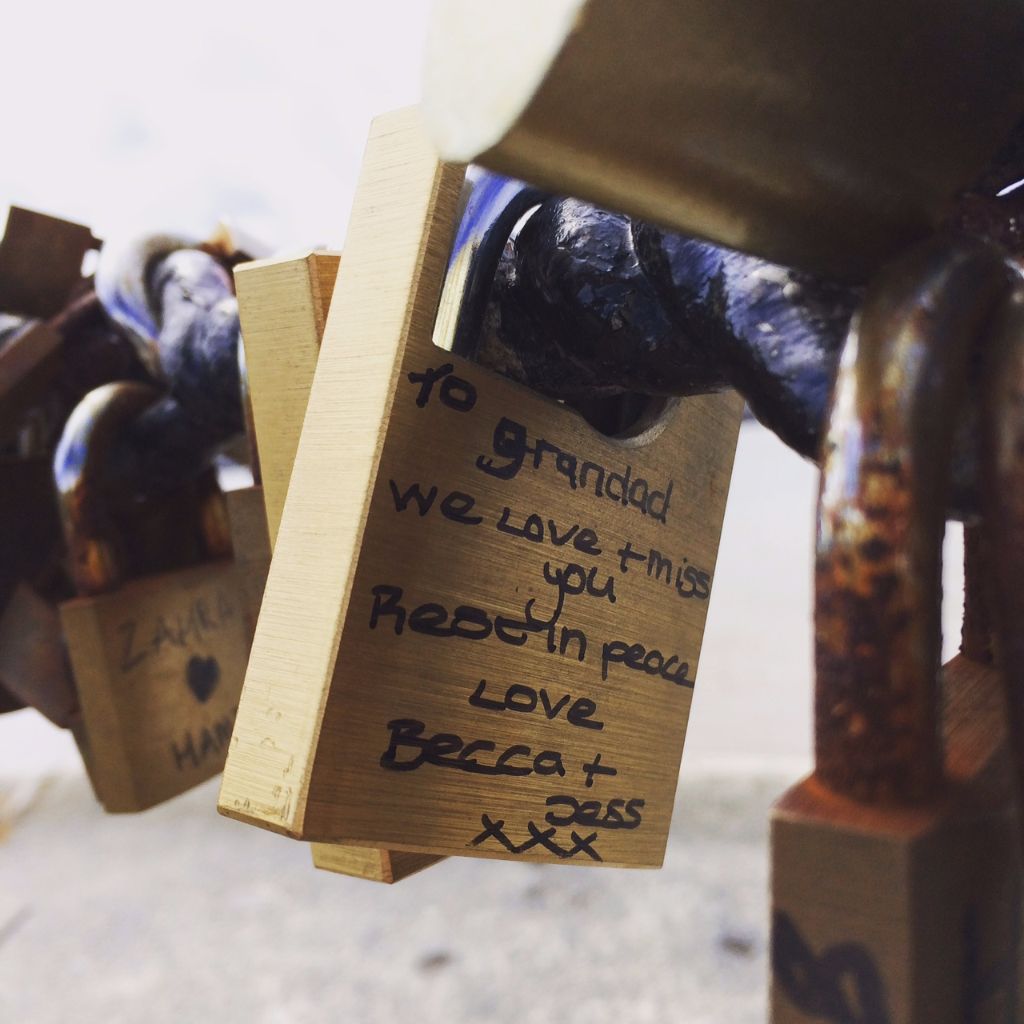 To
grandad
we Love + miss
you
Rest in peace
Love
Becca +
Jess
xxx
ZAHRA
♥